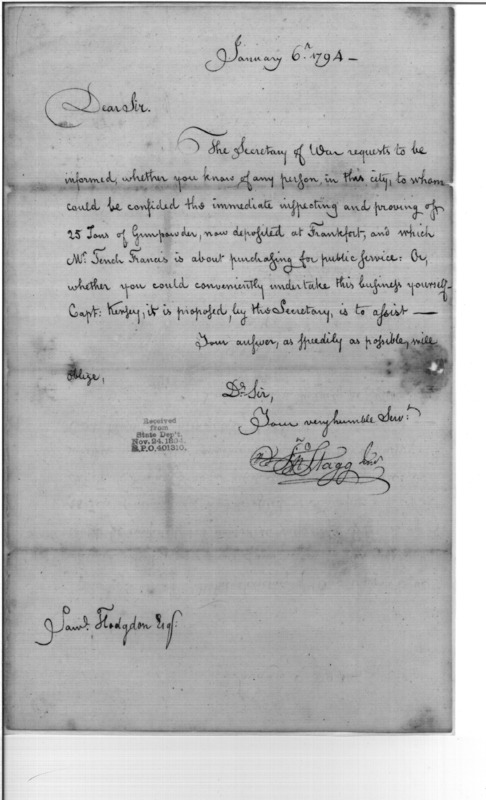 January 6.th 1794 —
Dear Sir.
The Secretary of War requests to be
informed, whether you know of any person, in this city, to whom
could be confided the immediate inspecting and proving of
25 Tons of Gunpowder, now deposited at Frankfort, and which
Mr. Tench Francis is about purchasing for public service: Or,
whether you could conveniently undertake this business yourself—
Capt: Kersey, it is proposed, by the Secretary, is to assist —
Your answer, as speedily as possible, will
oblige,
Dr. Sir,
Your very humble Servt.
Jno Stagg Junr.
Received
from
State Dep't.
Nov. 24, 
B.P.O. 401310.
Saml. Hodgdon Esqr.